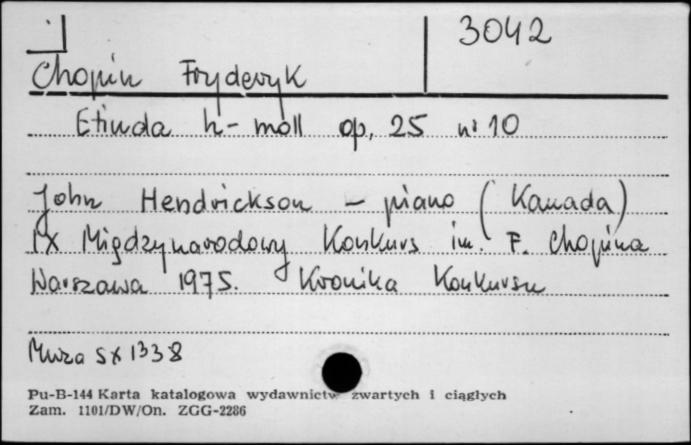 3042
Chopin Fryderyk
Etiuda h-moll op. 25 nr 10
John Hendrickson – piano (Kanada)
IX Międzynarodowy Konkurs im. F. Chopina
Warszawa 1975. Kronika Konkursu
Muza SX 1338
Pu-B-144 Karta katalogowa wydawnictw zwartych i ciągłych
Zam. 1101/DW/On. ZGG-2286